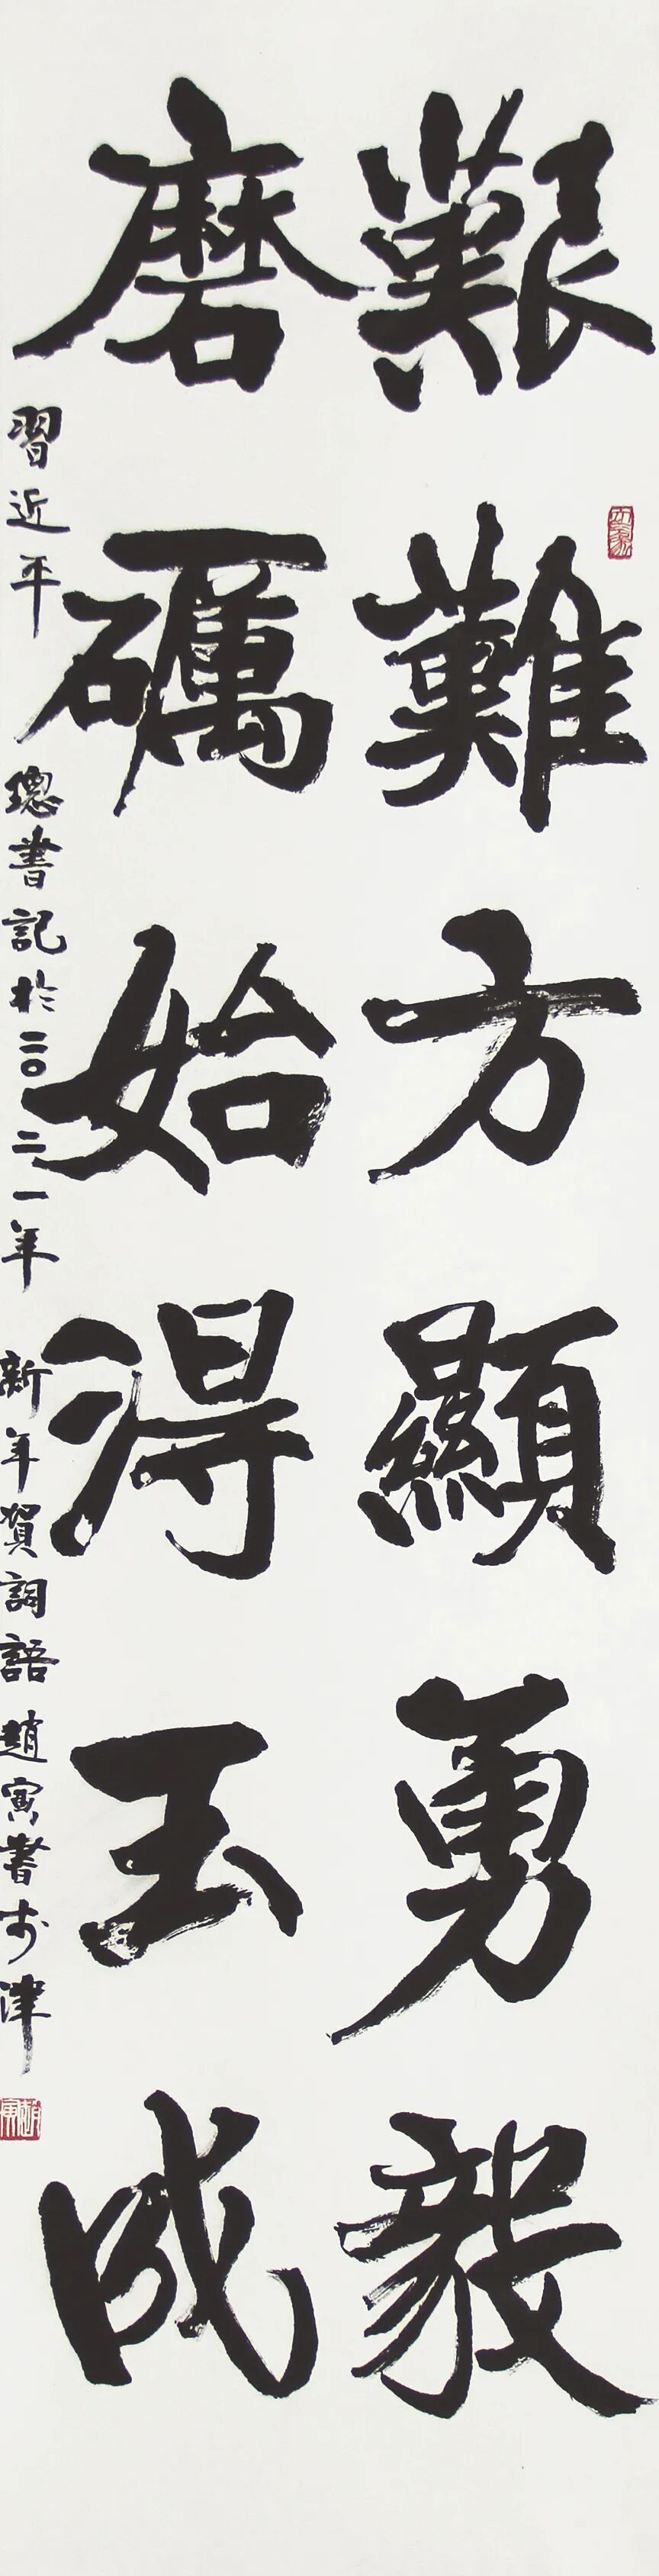 艱難方顯勇毅
磨礪始得玉成
習近平 總書記於二〇二一年 新年賀詞語 趙寅書於津
趙寅